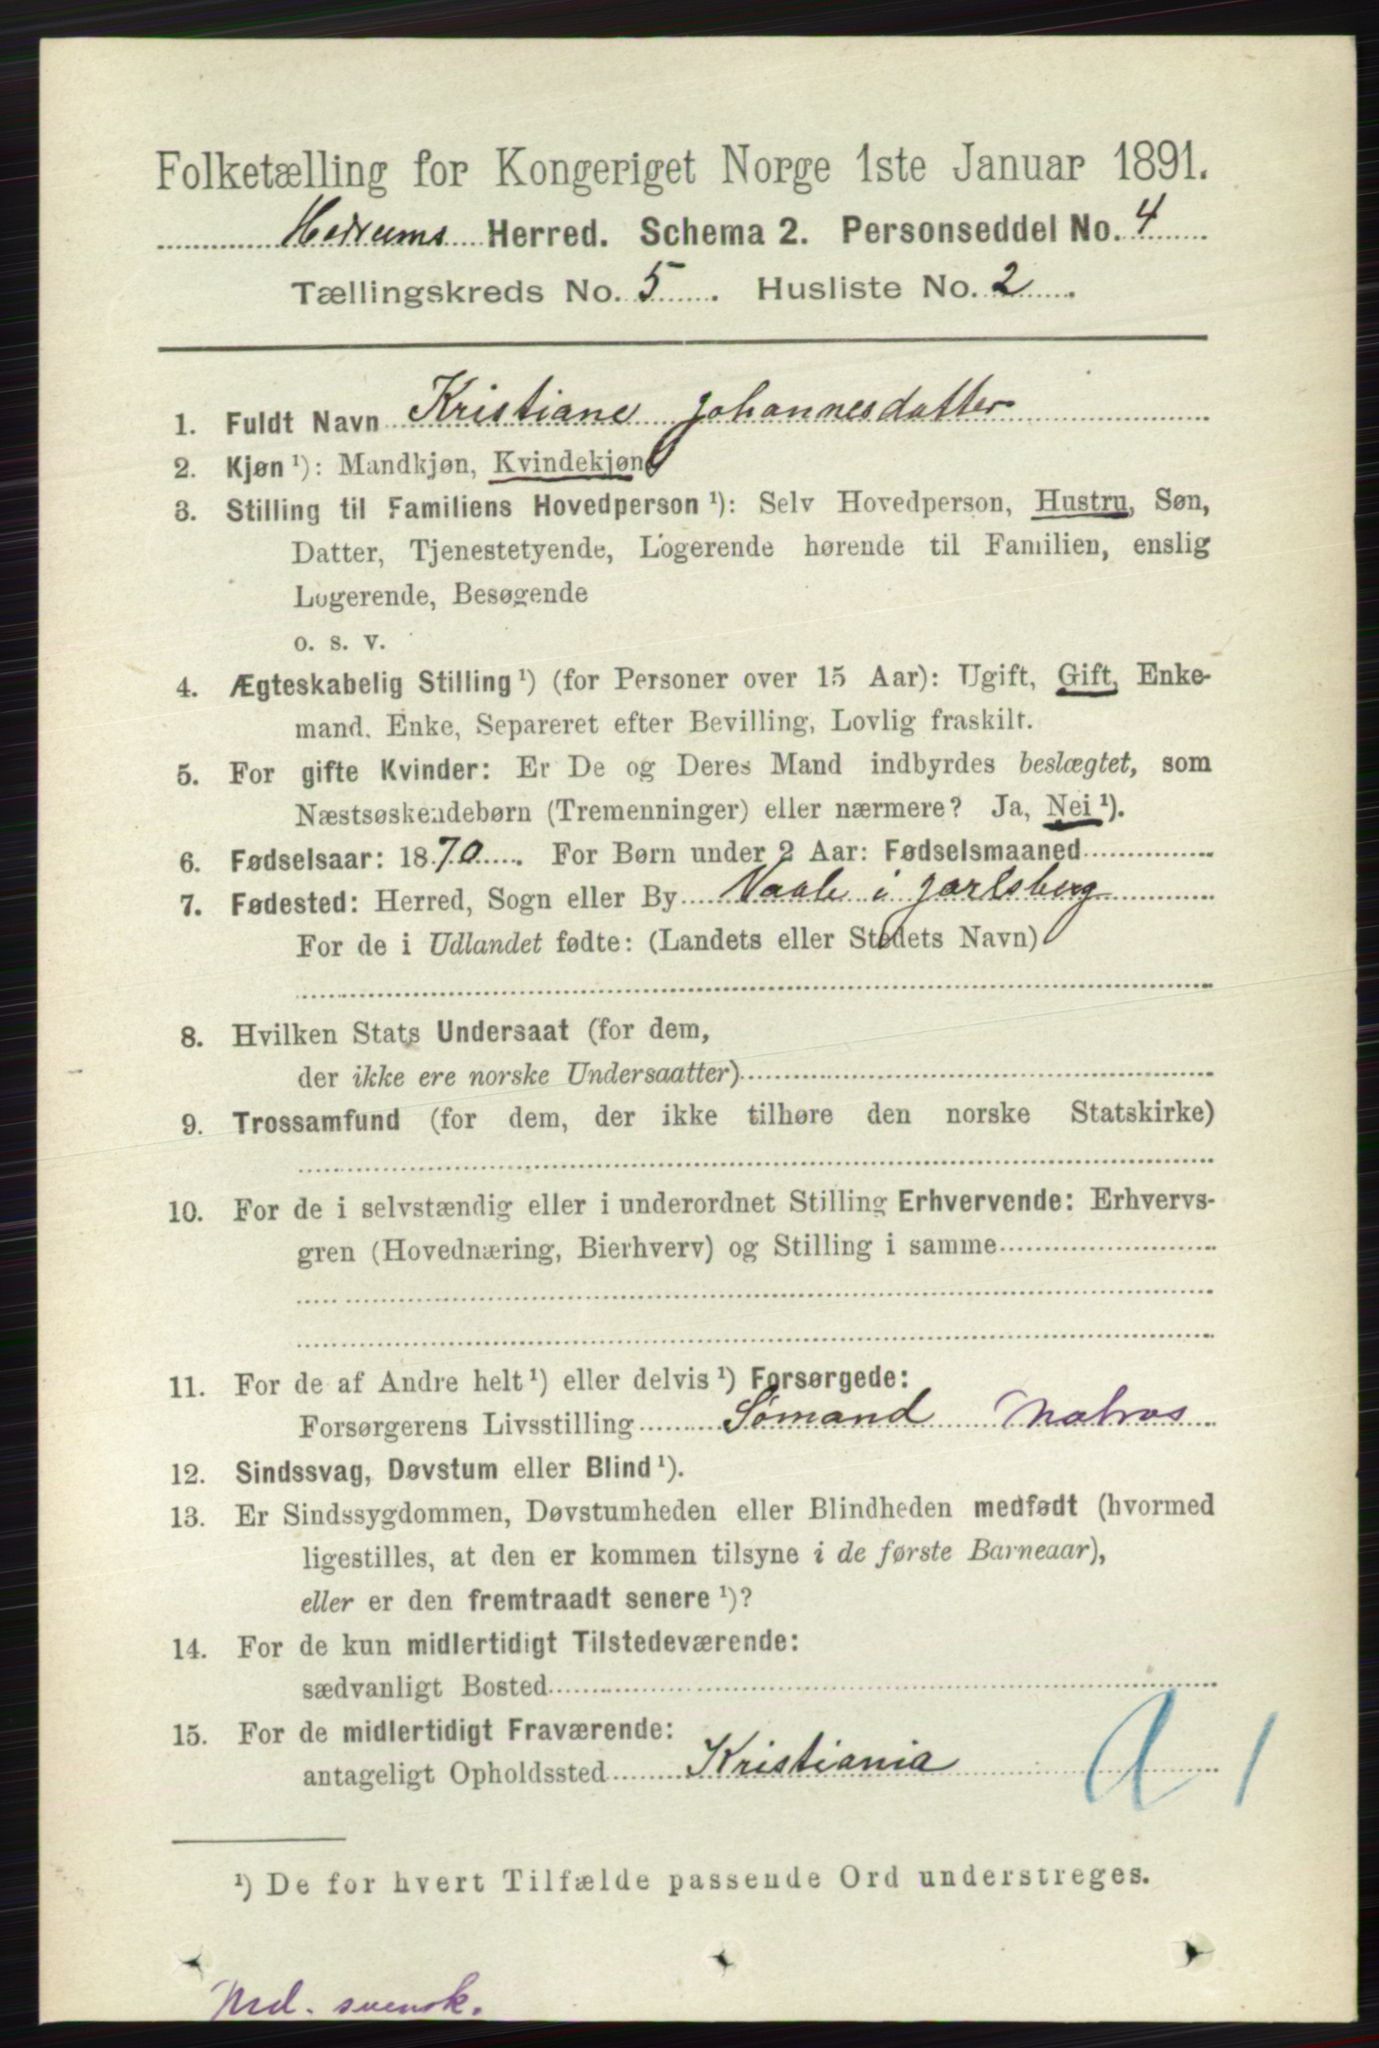 Folketælling for Kongeriget Norge 1ste Januar 1891.
Hedrums Herred. Schema 2. Personseddel No. 4
Tællingskreds No. 5. Husliste No. 2.
1. Fuldt Navn Kristiane Johannesdatter
2. Kjøn ¹): Mandkjøn, Kvindekjøn
3. Stilling til Familiens Hovedperson ¹): Selv Hovedperson, Hustru, Søn,
Datter, Tjenestetyende, Logerende hørende til Familien, enslig
Logerende, Besøgende
o. s. v.
4. Ægteskabelig Stilling ¹) (for Personer over 15 Aar): Ugift, Gift, Enke-
mand. Enke, Separeret efter Bevilling, Lovlig fraskilt.
5. For gifte Kvinder: Er De og Deres Mand indbyrdes beslægtet, som
Næstsøskendebørn (Tremenninger) eller nærmere? Ja, Nei ¹).
6. Fødselsaar: 1870. For Børn under 2 Aar: Fødselsmaaned
7. Fødested: Herred, Sogn eller By Vaale i Jarlsberg
For de i Udlandet fødte: (Landets eller Stedets Navn)
8. Hvilken Stats Undersaat (for dem,
der ikke ere norske Undersaatter)
9. Trossamfund (for dem, der ikke tilhøre den norske Statskirke)
10. For de i selvstændig eller i underordnet Stilling Erhvervende: Erhvervs-
gren (Hovednæring, Bierhverv) og Stilling i samme
11. For de af Andre helt ¹) eller delvis ¹) Forsørgede:
Forsørgerens Livsstilling Sømand Matros
12. Sindssvag, Døvstum eller Blind ¹).
13. Er Sindssygdommen, Døvstumheden eller Blindheden medfødt (hvormed
ligestilles, at den er kommen tilsyne i de første Barneaar),
eller er den fremtraadt senere ¹)?
14. For de kun midlertidigt Tilstedeværende:
sædvanligt Bosted
15. For de midlertidigt Fraværende:
antageligt Opholdssted Kristiania
a 1
¹) De for hvert Tilfælde passende Ord understreges.
Md. svensk.